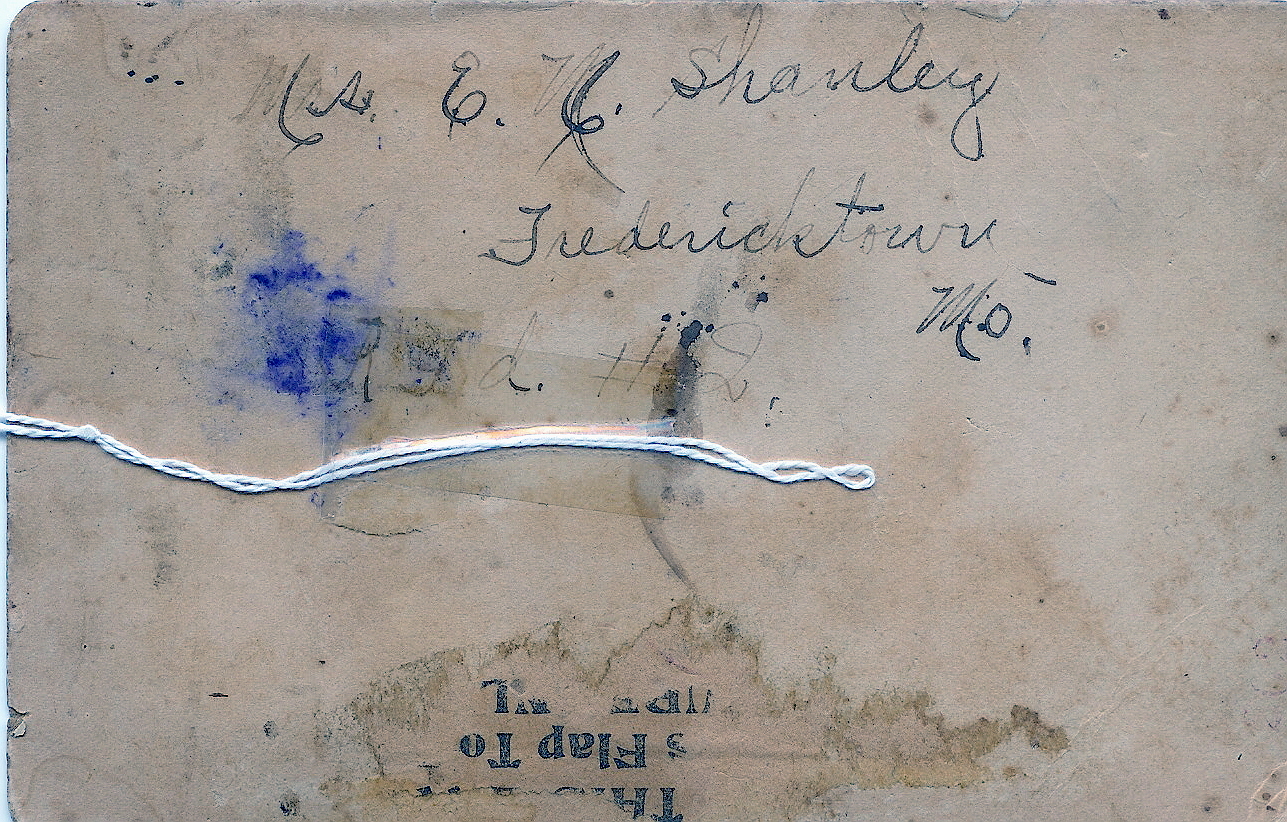 Mrs. E. M. Shanley
Fredericktown
Mo.
d. # 2.
Flap To